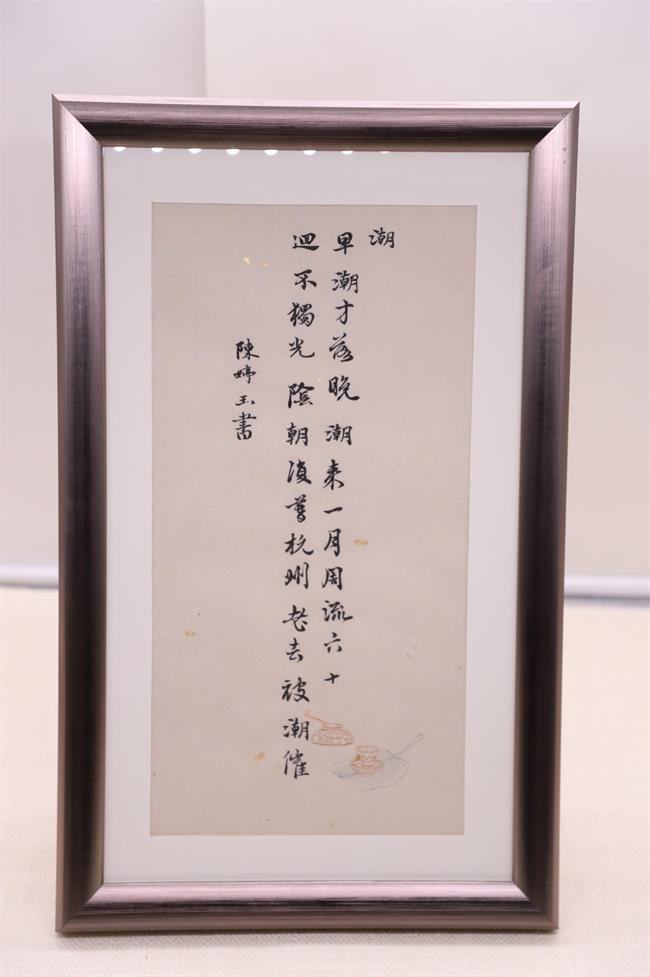 潮
早潮才落晚潮来一月周流六十
迴不獨光陰朝復暮杭州老去被潮催
陳婷玉書